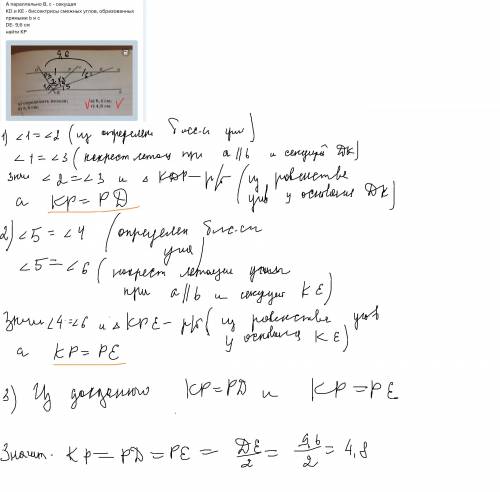 А параллельно В, с - секущая
KD и KE - биссектрисы смежных углов, образованных
прямыми b и c
DE- 9,6 см
найти KP
9,6
1) ∠1=∠2 (из определен бисс-и угла)
∠1=∠3 (накрест лежащ при a∥b и секущей DK)
Значит ∠2=∠3 и △KDP-р/б (из равенства
углов у основания DK)
а KP=PD
2) ∠5=∠4 (определен бис-си
угла)
∠5=∠6 (накрест лежащи углы
при a∥b и секущей KE)
Значит ∠4=∠6 и △KPE-р/б (из равенства углов
у основания KE)
а KP=PE
3) Из доказанного KP=PD и KP=PE
Значит KP=PD=PE=DE/2=9,6/2=4,8